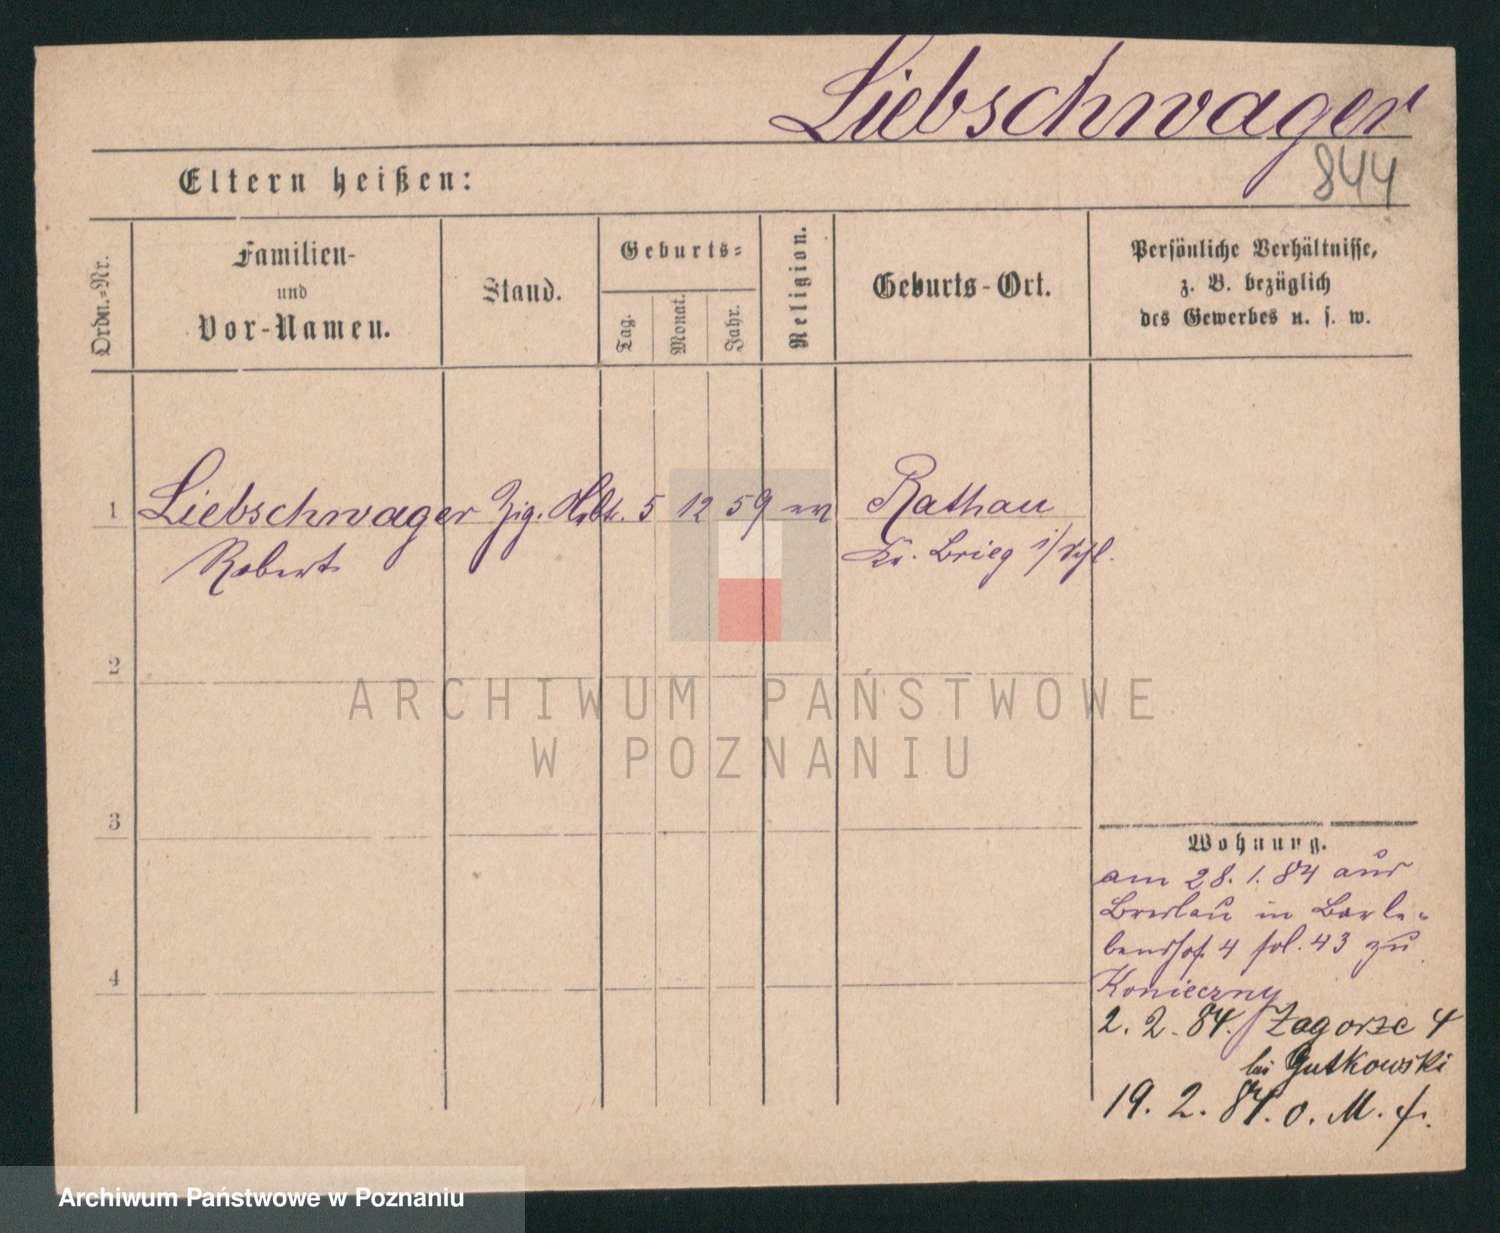 Liebschwager
844
Eltern heißen:
Ordn.-Nr.
Familien-
und
Vor-Namen.
Stand.
Geburts-
Tag.
Monat.
Jahr.
Religion.
Geburts-Ort.
Persönliche Verhältnisse,
z. B. bezüglich
des Gewerbes u. s. w.
1 Liebschwager Zig. 5 12 59 ev Rathau
Robert Kr. Brieg i/Schl.
2
ARCHIWUM PAŃSTWOWE
W POZNANIU
3
Wohnung.
am 28. 1. 84 aus
Breslau in Barle-
benshof 4 fol. 43 zu
4
Konieczny
2. 2. 84. Zagorze 4
bei Gutkowski
19. 2. 84. o. M. f.
Archiwum Państwowe w Poznaniu